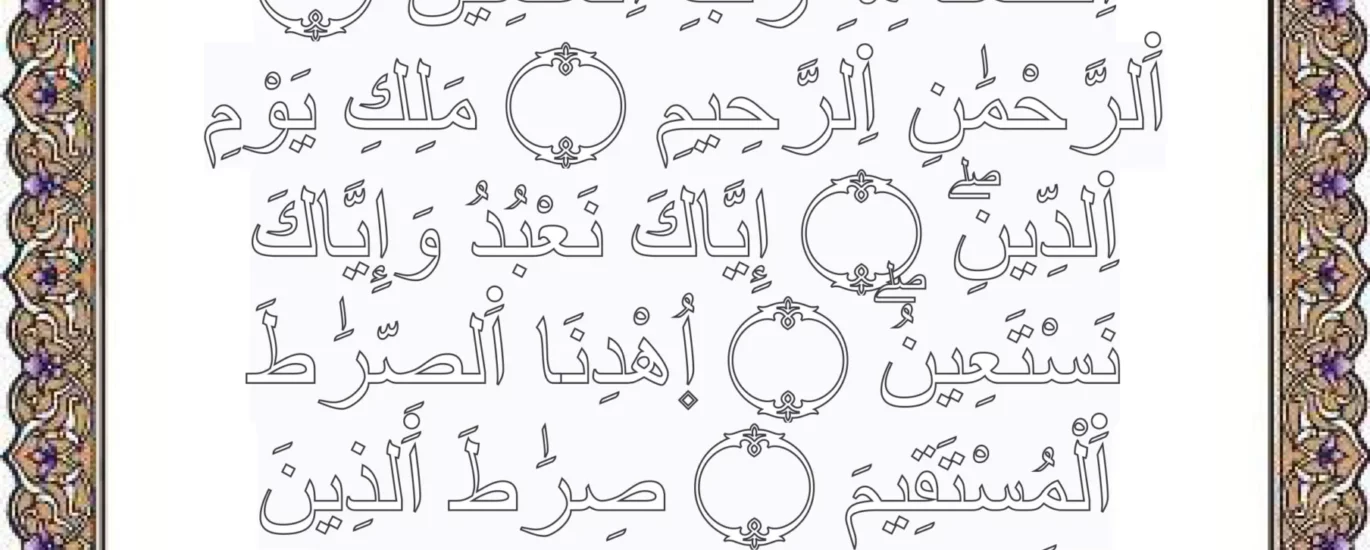 اَ۬لرَّحْمَٰنِ اِ۬لرَّحِيمِ مَلِكِ يَوْمِ
اِ۬لدِّينِۖ إِيَّاكَ نَعْبُدُ وَإِيَّاكَ
نَسْتَعِينُۖ اُ۪هْدِنَا اَ۬لصِّرَٰطَ
اَ۬لْمُسْتَقِيمَ صِرَٰطَ اَ۬لذِينَ